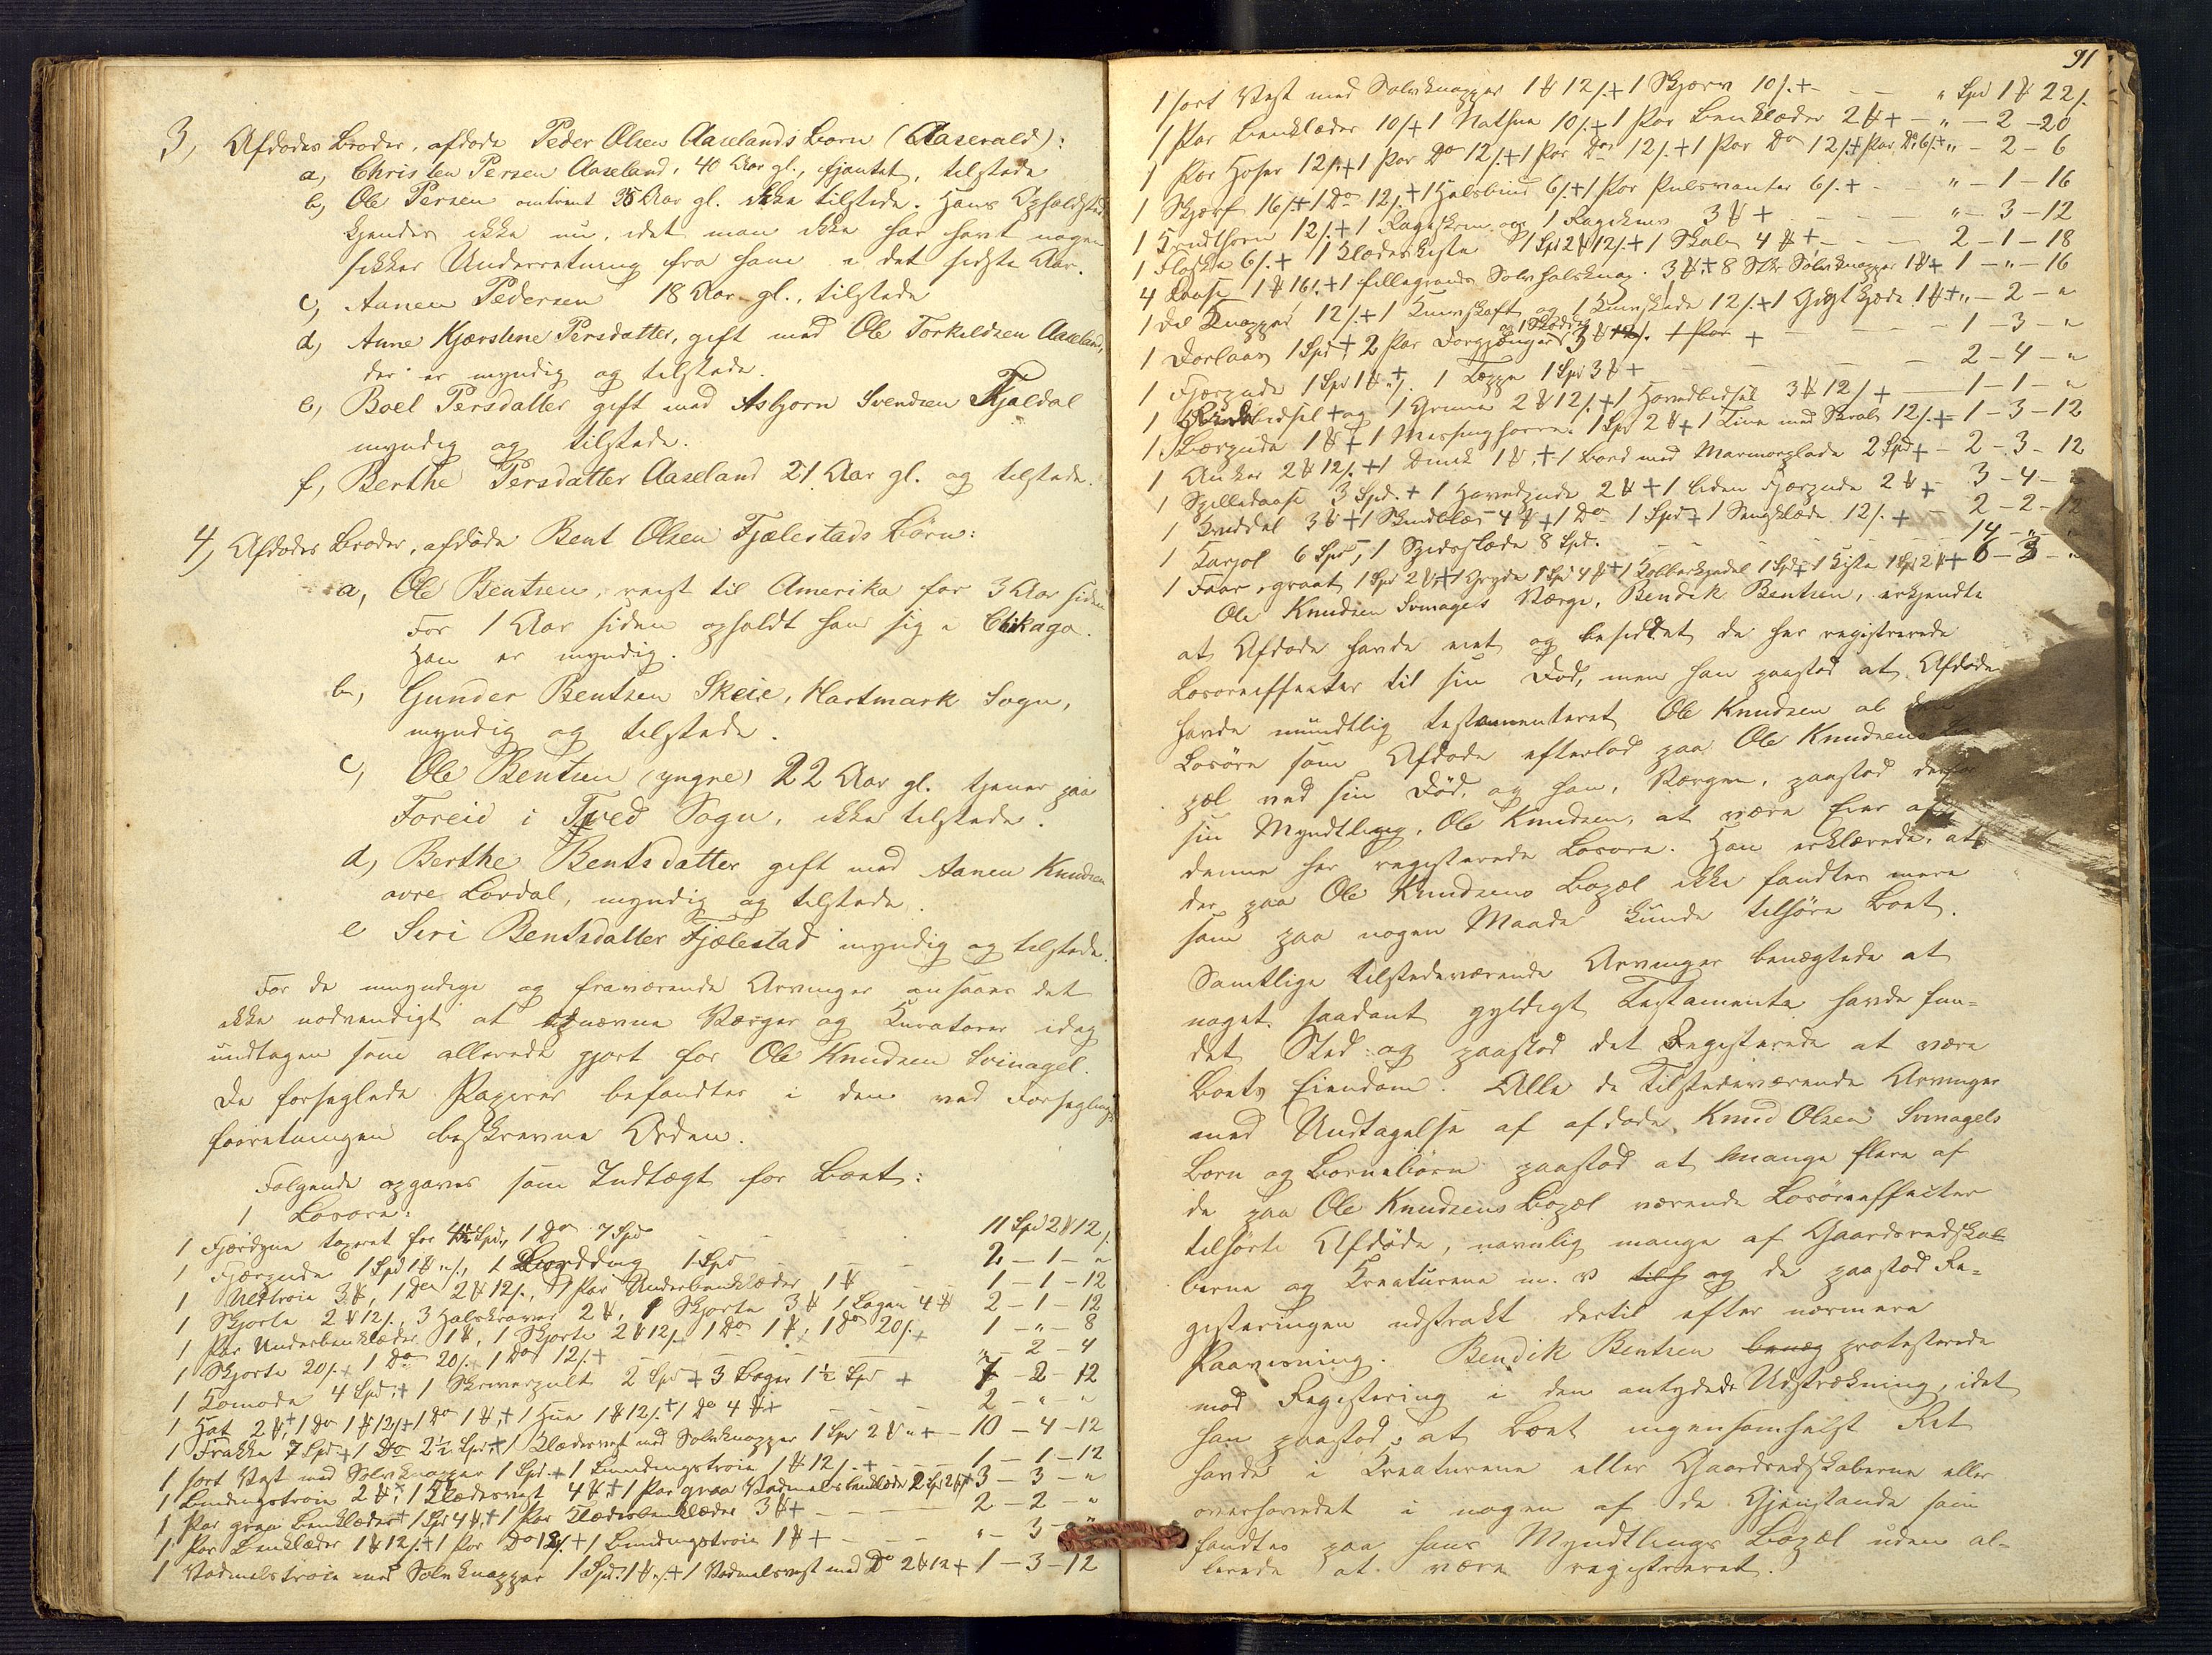 3, Afdødes Broder, afdøde Peder Olsen Aaselands Børn (Aaserald):
a, Christen Persen Aaseland, 40 Aar gl., tilstede
b, Ole Persen omtrent 35 Aar gl. ikke tilstede. Hans Opholdssted
kjendes ikke nu, idet man ikke har havt nogen
sikker Underretning fra ham i det sidste Aar.
c, Aanen Pedersen 18 Aar gl., tilstede
d, Anne Kjerstine Persdatter, gift med Ole Torkildsen Aaseland,
der er myndig og tilstede.
e, Boel Persdatter gift med Asbjørn Svendsen Fjeldal
myndig og tilstede.
f, Berthe Persdatter Aaseland 21 Aar gl. og tilstede.
4, Afdødes Broder, afdøde Bent Olsen Fjælestads Børn:
a, Ole Bentsen, reist til Amerika for 3 Aar siden
For 1 Aar siden opholdt han sig i Chikago.
Han er myndig.
b, Gunder Bentsen Skeie, Hartmark Sogn,
myndig og tilstede.
c, Ole Bentsen (yngre) 22 Aar gl. tjener paa
Foreid i Tved Sogn, ikke tilstede.
d, Berthe Bentsdatter gift med Aanen Knudsen
øvre Lovdal, myndig og tilstede.
e Siri Bentsdatter Fjælestad myndig og tilstede.
For de umyndige og fraværende Arvinger ansaaes det
ikke nødvendigt at opnævne Værger og Kuratorer idag
undtagen som allerede gjort for Ole Knudsen Svinagel.
De forseglede Papirer befandtes i den ved Forseglings
forretningen beskrevne Orden.
Følgende opgaves som Indtægt for Boet:
1 Løsøre:
1 Fjærdyne taxeret for 4½ Spd, 1 Do 7 Spd 11 Spd 2 12
1 Fjærpude 1 Spd 1, 1 1 Spd 2 - 1 - "
1 Uldtrøie 3, 1 Do 2 12, 1 Par Underbenklæder 1 1 - 1 - 12
1 Skjorte 2 12, 3 Halskraver 2, 1 Skjorte 3 1 Lagen 4 2 - 1 - 12
1 Par Underbenklæder 1, 1 Skjorte 2 12 1 Do 1, 1 Do 20 + 1 - " - 8
1 Skjorte 20 + 1 Do 20 + 1 Do 12 + " - 2 - 4
1 Komode 4 Spd + 1 Skriverpult 2 Spd + 3 Bøger 1½ Spd + 7 - 2 - 12
1 Hat 2 + 1 Do 1 12 + 1 Do 1 + 1 Hue 1 12 + 1 Do 4 + 2 - " - "
1 Frakke 7 Spd + 1 Do 2½ Spd + 1 Klædesvest med Sølvknapper 1 Spd 2 + 10 - 4 - 12
1 sort Vest med Sølvknapper 1 Spd + 1 Bundingstrøie 1 12 + 1 - 1 - 12
1 Bundingstrøie 2 + 1 Klædesvest 4 + 1 Par graa Vadmelsbenklæder 2 Spd 2 + 3 - 3 - "
1 Par graa Benklæder 1 Spd 4 + 1 Par Klædesbenklæder 3 + 2 - 2 - "
1 Par Benklæder 1 12 + 1 Par Do 12 + 1 Bundingstrøie 1 + " - 3 - "
1 Vadmelstrøie med Sølvknapper 1 Spd 1 + 1 Vadmelsvest med Do 2 12 + 1 - 3 - 12
91
1 sort Vest med Sølvknapper 1 12 + 1 Skjærv 10 + " Spd 1 22
1 Par Benklæder 10 + 1 Nathue 10 + 1 Par Benklæder 2 + " - 2 - 20
1 Par Hoser 12 + 1 Par Do 12 + 1 Par Do 12 + 1 Par Do 12 + Par Do 6 + " - 2 - 6
1 Skjærf 16 + 1 Do 12 + 1 Halsbind 6 + 1 Par Pulsvanter 6 + " - 1 - 16
1 Krudthorn 12 + 1 og 1 Ragekniv 3 + " - 3 - 12
1 Flaske 6 + 1 Klædeskiste 1 Spd 2 12 + 1 Skal 4 + 2 - 1 - 18
4 1 16 + 1 fillegrands Sølv halsknap 3 + 8 Stk Sølvknapper 1 + 1 - " - 16
1 Del Knapper 12 + 1 Knivskaft og 1 Knivskede 12 + 1 Gigtkjæde 1 + " - 2 - "
1 Dørlaas 1 Spd + 2 Par Dørgjænger 3 + 1 - 3 - "
1 Fjærpude 1 Spd 1 + 1 Tæppe 1 Spd 3 + 2 - 4 - "
1 Ridebidsel + og 1 Grime 2 12 + 1 Hovedbidsel 3 12 + 1 - 1 - "
1 Lærpude 1 + 1 Messinghorn 1 Spd 2 + 1 Tine med Skrab 12 + 1 - 3 - 12
1 Anker 2 12 + 1 Dunk 1 + 1 Bord med Marmorplade 2 Spd + 2 - 3 - 12
1 Spilledaase 3 Spd + 1 Hovedpude 2 + 1 liden Fjærpude 2 + 3 - 4 - "
1 3 + 1 4 + 1 Do 1 Spd + 1 Sengklæde 12 + 2 - 2 - 12
1 Karjol 6 Spd, 1 Spidsslæde 8 Spd. 14 - " - "
1 Faar, graat 1 Spd 2 + 1 Gryde 1 Spd 4 + 1 Kobberkjedel 1 Spd + 1 Kiste 1 Spd 2 + 6 - 3 - "
Ole Knudsen Svinagels Værge, Bendik Bentsen, erkjendte
at Afdøde havde eiet og besiddet de her registrerede
Løsøreeffecter til sin Død, men han paastod at Afdøde
havde mundtlig testamenteret Ole Knudsen al den
Løsøre som Afdøde efterlod paa Ole Knudsens Bo-
pæl ved sin Død, og han, Værgen, paastod derfor
sin Myndtling, Ole Knudsen, at være Eier af
denne her registerede Løsøre. Han erklærede, at
der paa Ole Knudsens Bopæl ikke fandtes mere
som paa nogen Maade kunde tilhøre Boet.
Samtlige tilstedeværende Arvinger benægtede at
noget saadant gyldigt Testamente havde fun-
det Sted og paastod det Registerede at være
Boets Eiendom. Alle de Tilstedeværende Arvinger
med Undtagelse af afdøde Knud Olsen Svinagels
Børn og Børnebørn paastod at mange flere af
de paa Ole Knudsens Bopæl værende Løsøreeffecter
tilhørte Afdøde, navnlig mange af Gaardsredska-
berne og Kreaturene m. v. og de paastod Re-
gisteringen udstrakt dertil efter nærmere
Paavisning. Bendik Bentsen benæg protesterede
mod Registering i den antydede Udstrækning, idet
han paastod, at Boet ingensomhelst Ret
havde i Kreaturene eller Gaardredskaberne eller
overhovedet i nogen af de Gjenstande som
fandtes paa hans Myndtlings Bopæl uden al-
lerede at være registreret.